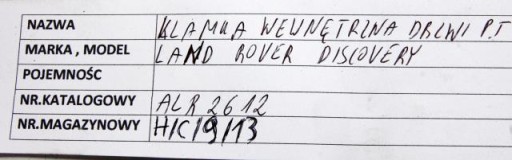 NAZWA KLAMKA WEWNĘTRZNA DRZWI P.T
MARKA , MODEL LAND ROVER DISCOVERY
POJEMNOŚĆ
NR.KATALOGOWY ALR 2612
NR.MAGAZYNOWY H/C/9/13